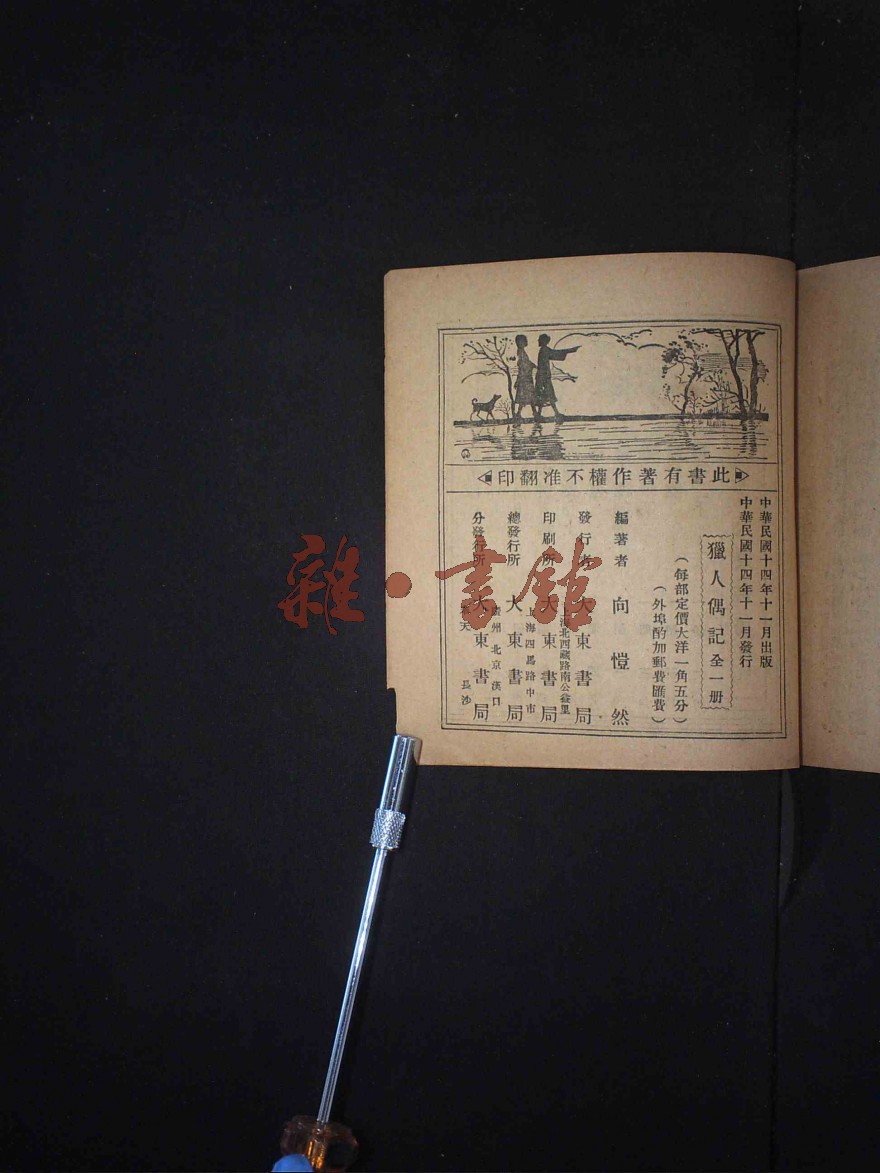 此書有著作權不准翻印
中華民國十四年十一月出版
中華民國十四年十一月發行
獵人偶記 全一册
（每部定價大洋一角五分）
（外埠酌加郵費匯費）
編著者 向愷然
發行者 大東書局
上海北西藏路南公益里
印刷所 大東書局
上海四馬路中市
總發行所 大東書局
廣州 北京 漢口
分發行所 大東書局
奉天 長沙
雜·書館